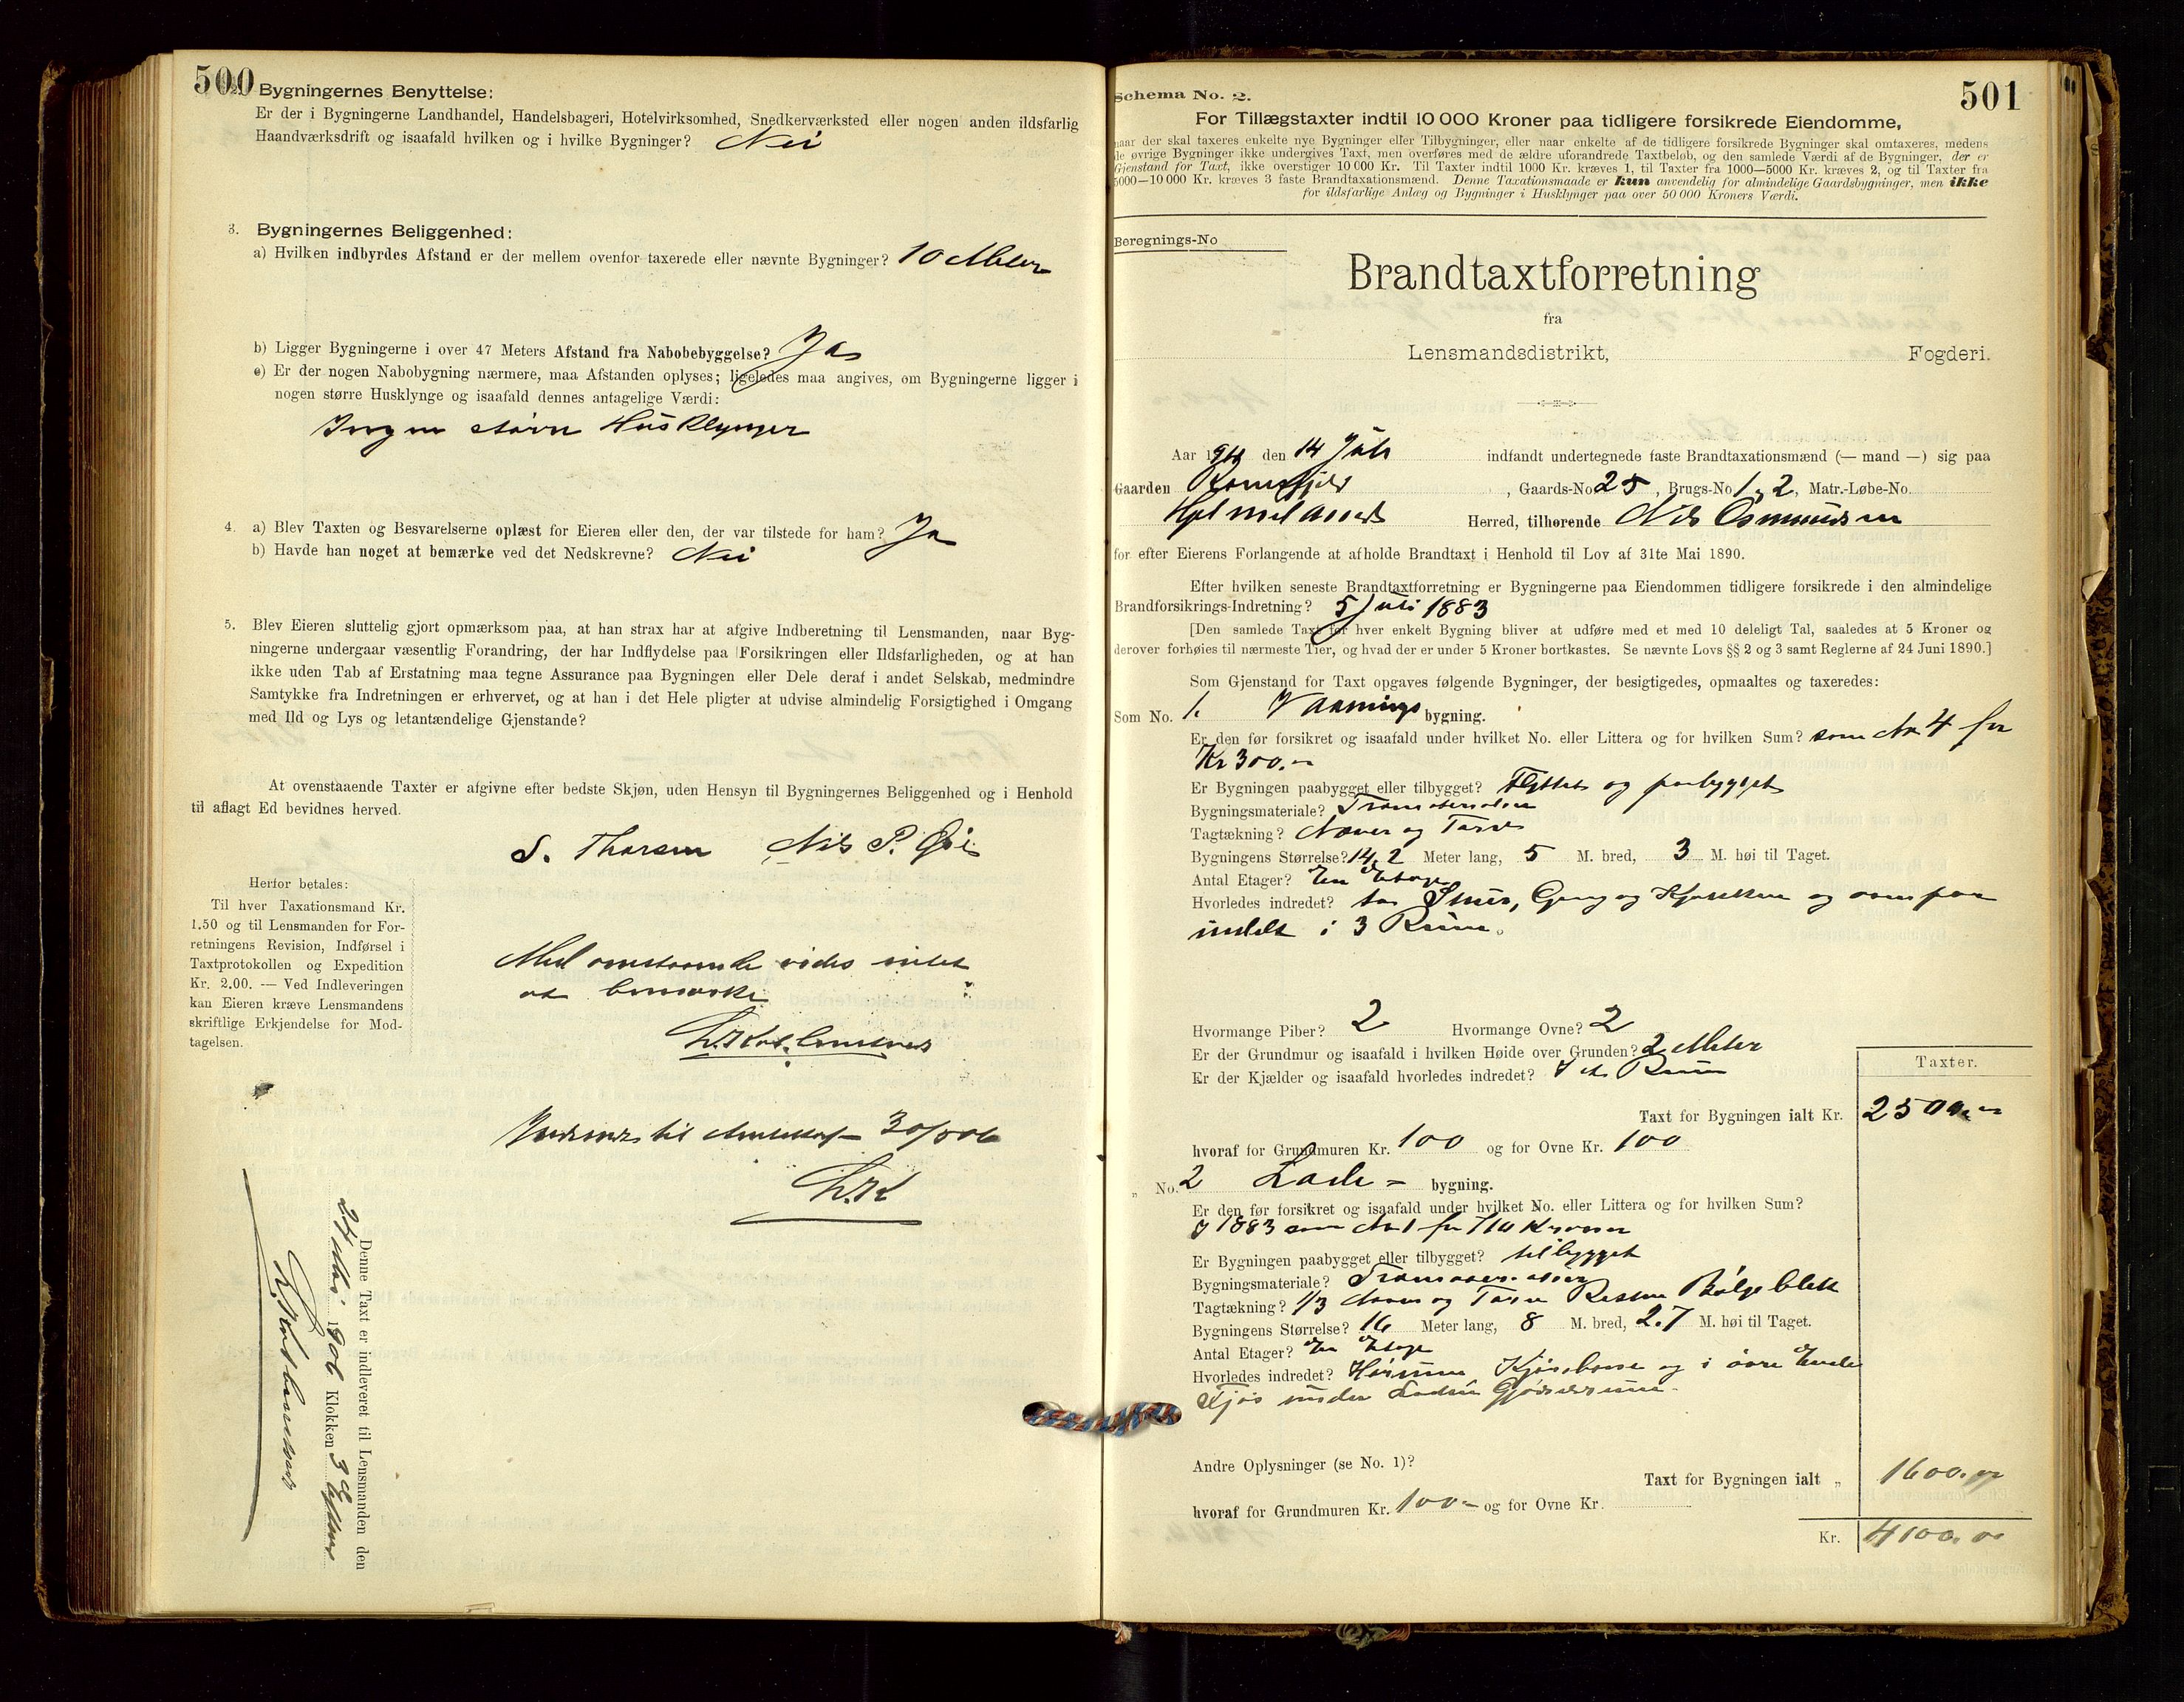 500
Bygningernes Benyttelse:
Er der i Bygningerne Landhandel, Handelsbageri, Hotelvirksomhed, Snedkerværksted eller nogen anden ildsfarlig
Haandværksdrift og isaafald hvilken og i hvilke Bygninger? Nei
3. Bygningernes Beliggenhed:
a) Hvilken indbyrdes Afstand er der mellem ovenfor taxerede eller nævnte Bygninger? 10 Meter
b) Ligger Bygningerne i over 47 Meters Afstand fra Nabobebyggelse? Ja
c) Er der nogen Nabobygning nærmere, maa Afstanden oplyses; ligeledes maa angives, om Bygningerne ligger i
nogen større Husklynge og isaafald dennes antagelige Værdi:
Ingen større Husklynger
4. a) Blev Taxten og Besvarelserne oplæst for Eieren eller den, der var tilstede for ham? Ja
b) Havde han noget at bemærke ved det Nedskrevne? Nei
5. Blev Eieren sluttelig gjort opmærksom paa, at han strax har at afgive Indberetning til Lensmanden, naar Byg-
ningerne undergaar væsentlig Forandring, der har Indflydelse paa Forsikringen eller Ildsfarligheden, og at han
ikke uden Tab af Erstatning maa tegne Assurance paa Bygningen eller Dele deraf i andet Selskab, medmindre
Samtykke fra Indretningen er erhvervet, og at han i det Hele pligter at udvise almindelig Forsigtighed i Omgang
med Ild og Lys og letantændelige Gjenstande?
At ovenstaaende Taxter er afgivne efter bedste Skjøn, uden Hensyn til Bygningernes Beliggenhed og i Henhold
til aflagt Ed bevidnes herved.
S. Thorsen Nils P. Øie
Herfor betales:
Til hver Taxationsmand Kr.
1.50 og til Lensmanden for For-
retningens Revision, Indførsel i
Taxtprotokollen og Expedition
Kr. 2.00. — Ved Indleveringen
kan Eieren kræve Lensmandens
skriftlige Erkjendelse for Mod-
tagelsen.
Med omstaaende vides intet
at bemærke
til 30/8 06
Denne Taxt er indleveret til Lensmanden den
24 1906 Klokken 3 Efterm
Schema No. 2.
501
For Tillægstaxter indtil 10 000 Kroner paa tidligere forsikrede Eiendomme,
naar der skal taxeres enkelte nye Bygninger eller Tilbygninger, eller naar enkelte af de tidligere forsikrede Bygninger skal omtaxeres, medens
de øvrige Bygninger ikke undergives Taxt, men overføres med de ældre uforandrede Taxtbeløb, og den samlede Værdi af de Bygninger, der er
Gjenstand for Taxt, ikke overstiger 10 000 Kr. Til Taxter indtil 1000 Kr. kræves 1, til Taxter fra 1000—5000 Kr. kræves 2, og til Taxter fra
5000—10 000 Kr. kræves 3 faste Brandtaxationsmænd. Denne Taxationsmaade er kun anvendelig for almindelige Gaardsbygninger, men ikke
for ildsfarlige Anlæg og Bygninger i Husklynger paa over 50 000 Kroners Værdi.
Beregnings-No
Brandtaxtforretning
fra
Lensmandsdistrikt, Fogderi.
Aar den 14 Juli indfandt undertegnede faste Brandtaxationsmænd (— mand —) sig paa
Gaarden , Gaards-No 25, Brugs-No 1, 2, Matr.-Løbe-No.
Hjelmelands Herred, tilhørende Nils Osmundsen
for efter Eierens Forlangende at afholde Brandtaxt i Henhold til Lov af 31te Mai 1890.
Efter hvilken seneste Brandtaxtforretning er Bygningerne paa Eiendommen tidligere forsikrede i den almindelige
Brandforsikrings-Indretning? 5 Juli 1883
[Den samlede Taxt for hver enkelt Bygning bliver at udføre med et med 10 deleligt Tal, saaledes at 5 Kroner og
derover forhøies til nærmeste Tier, og hvad der er under 5 Kroner bortkastes. Se nævnte Lovs §§ 2 og 3 samt Reglerne af 24 Juni 1890.]
Som Gjenstand for Taxt opgaves følgende Bygninger, der besigtigedes, opmaaltes og taxeredes:
Som No. 1. Vaanings bygning.
Er den før forsikret og isaafald under hvilket No. eller Littera og for hvilken Sum? som No 4 for
Kr 300.
Er Bygningen paabygget eller tilbygget? Flyttet og paabygget
Bygningsmateriale? Træmaterialer
Tagtækning? Næver og Torv
Bygningens Størrelse? 14,2 Meter lang, 5 M. bred, 3 M. høi til Taget.
Antal Etager? En Etage
Hvorledes indredet? to Stuer, Gang og Kjøkken og ovenpaa
indelt i 3 Rum.
Hvormange Piber? 2 Hvormange Ovne? 2
Er der Grundmur og isaafald i hvilken Høide over Grunden? 2 Meter
Er der Kjælder og isaafald hvorledes indredet? I et Rum
Taxter.
Taxt for Bygningen ialt Kr. 2500.
hvoraf for Grundmuren Kr. 100 og for Ovne Kr. 100
„ No. 2 Lade- bygning.
Er den før forsikret og isaafald under hvilket No. eller Littera og for hvilken Sum?
I 1883 som No 1 for 710 Kroner
Er Bygningen paabygget eller tilbygget? tilbygget
Bygningsmateriale? Træmaterialier
Tagtækning? 1/3 Næver og Torv Resten Bølgeblik
Bygningens Størrelse? 16 Meter lang, 8 M. bred, 2.7 M. høi til Taget.
Antal Etager? En Etage
Hvorledes indredet? og i øvre Ende
Fjøs under Laden
Andre Oplysninger (se No. 1)?
Taxt for Bygningen ialt „ 1600.
hvoraf for Grundmuren Kr. 100- og for Ovne Kr.
Kr. 4100.00